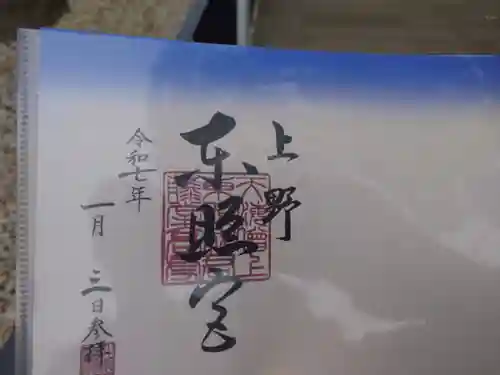 上野
東照宮
令和七年
一月三日参拝